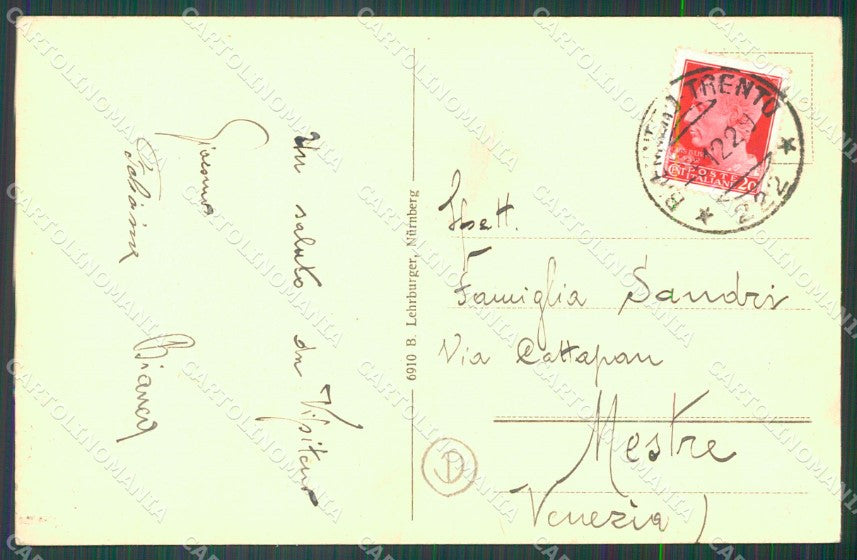 Un saluto da Vipiteno
Giacomo
Bianca
6910 B. Lehrburger, Nürnberg
TRENTO
12.2.9
222
POSTE
ITALIANE
CENT 20
Spett.
Famiglia Sandri
Via Cattapan
Mestre
Venezia)
CARTOLINOMANIA